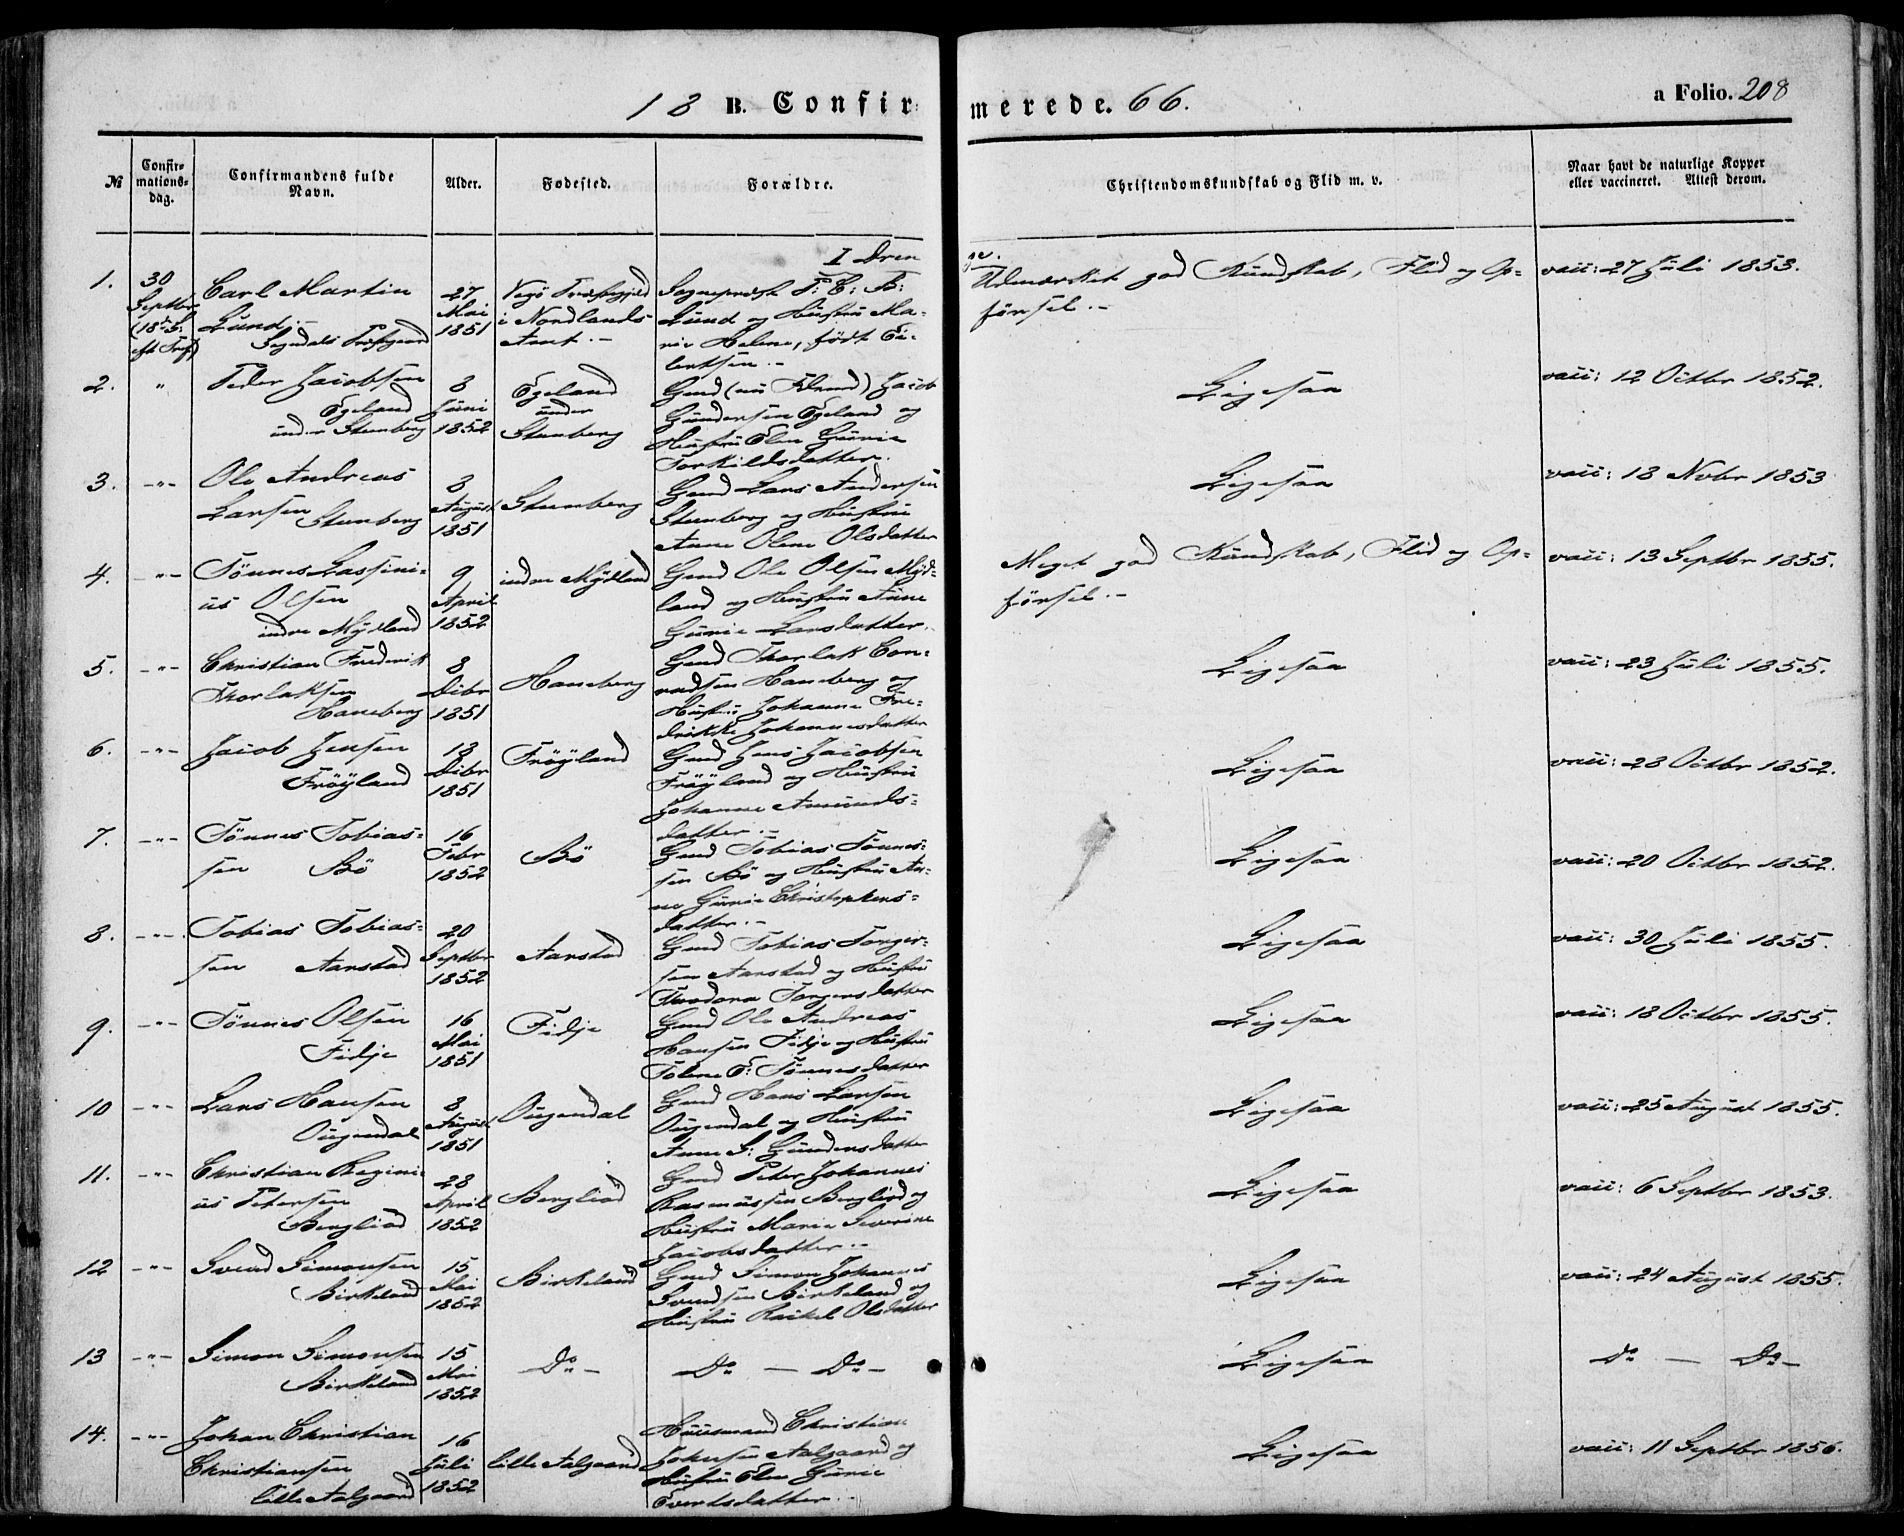 18 B. Confirmerede. 66.
a Folio. 208
№
Confirmationsdag.
Confirmandens fulde Navn.
Alder.
Fødested.
Forældre.
Christendomskundskab og Flid m. v.
Naar havt de naturlige Kopper eller vaccineret. Attest derom.
I Drenge.
1. 30 Septbr (18de S. eft Tref)
Carl Martin
Lund.-
Sogndals Præstegaard
27 Mai 1851
Vegø Præstegjeld
i Nordlands
Amt.-
Sogneprest T: C: B:
Lund og Hustru Ma-
rie Helene, født Ei-
lertsen.-
Udmærket god Kundskab, Flid og Op-
førsel.-
vacc: 27 Juli 1853.
2. "
Peder Jacobsen
Egeland
under Steenberg
8 Juni 1852
Egeland
under
Steenberg
Gmd (nu Elvmd) Jacob
Gundersen Egeland og
Hustru Elen Gurie
Torkildsdatter.
Ligesaa
vacc: 12 Octbr 1852.
3. -"-
Ole Andreas
Larsen Steenberg
8 August 1851
Steenberg
Gmd Lars Andersen
Steenberg og Hustru
Anne Olene Olsdatter
Ligesaa
vacc: 18 Novbr 1853
4. -"-
Tönnes Lassini-
us Olsen
indre Mydland
9 April 1852
indre Mydland
Gmd Ole Olsen Myd-
land og Hustru Anne
Gurie Larsdatter.
Meget god Kundskab, Flid og Op-
førsel.-
vacc: 13 Septbr 1855.
5. -"-
Christian Frederik
Thorlaksen
Haneberg
8 Dcbr 1851
Haneberg
Gmd Thorlak Con-
radsen Haneberg og
Hustru Johanne Fre-
drikke Johannesdatter
Ligesaa
vacc: 23 Juli 1855.
6. -"-
Jacob Jensen
Fröyland
18 Dcbr 1851
Fröyland
Gmd Jens Jacobsen
Fröyland og Hustru
Johanne Amunds-
datter.-
Ligesaa
vacc: 28 Octbr 1852.
7. -"-
Tönnes Tobias-
sen Bö
16 Febr 1852
Bö
Gmd Tobias Tönnes-
sen Bö og Hustru An-
ne Gurie Christophers-
datter.-
Ligesaa
vacc: 20 Octbr 1852.
8. -"-
Tobias Tobias-
sen Aarstad
20 Septbr 1852
Aarstad
Gmd Tobias Torger-
sen Aarstad og Hustru
Theodora Torgersdatter
Ligesaa
vacc: 30 Juli 1855.
9. -"-
Tönnes Olsen
Fidje
16 Mai 1851
Fidje
Gmd Ole Andreas
Hansen Fidje og Hustru
Tolene T: Tönnesdatter
Ligesaa
vacc: 18 Octbr 1855.
10 -"-
Lars Hansen
Ougendal
8 August 1851
Ougendal
Gmd Hans Larsen
Ougendal og Hustru
Anne S: Gundersdatter
Ligesaa
vacc: 25 August 1855.
11. -"-
Christian Regini-
us Petersen
Bergliod
28 April 1852
Bergliod
Gmd Peter Johannes
Rasmussen Bergliod og
Hustru Marie Severine
Jacobsdatter.-
Ligesaa
vacc: 6 Septbr 1853.
12 -"-
Svend Simonsen
Birkeland
15 Mai 1852
Birkeland
Gmd Simon Johannes
Svendsen Birkeland og
Hustru Rachel Olsdatter
Ligesaa
vacc: 24 August 1855.
13 -"-
Simon Simonsen
Birkeland
15 Mai 1852
Do -
Do - Do -
Ligesaa
Do - Do -
14. -"-
Johan Christian
Christiansen
lille Aalgaard
16 Juli 1852
lille Aalgaard
Huusmand Christian
Johnsen Aalgaard og
Hustru Elen Gurie
Evertsdatter.-
Ligesaa
vacc: 11 Septbr 1856.